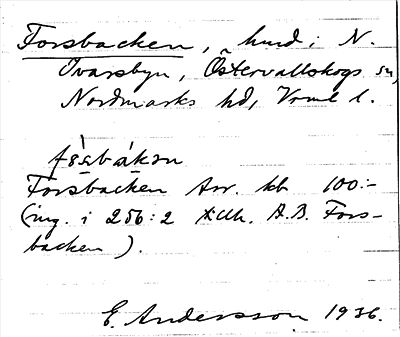 Forsbacken, hmd i N.
Ivarsbyn, Östervallskogs sn,
Nordmarks hd, Vrml l.
fɷ̀sbákən
Forsbacken Arr. kb 100:-
(ing. i 256:2 Älth. A.B. Fors-
backen).
E. Andersson 1936.